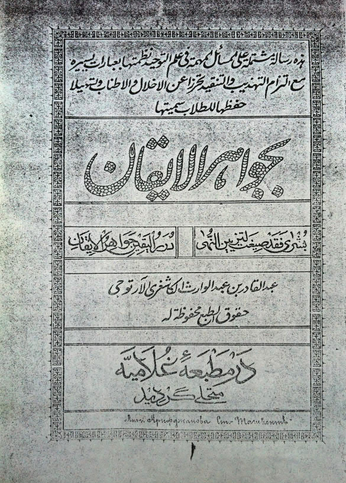 هذه رسالة مشتملة على مسائل مهمة فى علم التوحيد نظمتها بعبارات يسيره
مع التزام التهذيب والتنقيد تحرزا عن الاخلال والاطناب وتسهيلا
حفظها للطلاب سميتها
بجواهر الايقان
بشرى فقد صيغت لتزيين النهى
درر اليقين جواهر الايقان
عبد القادر بن عبد الوارث الكاشغرى الارتوجى
حقوق الطبع محفوظة له
در مطبعهٔ غلاميه
متحلى گرديد
Лит. Арифджанова Ст. Ташкентъ
١